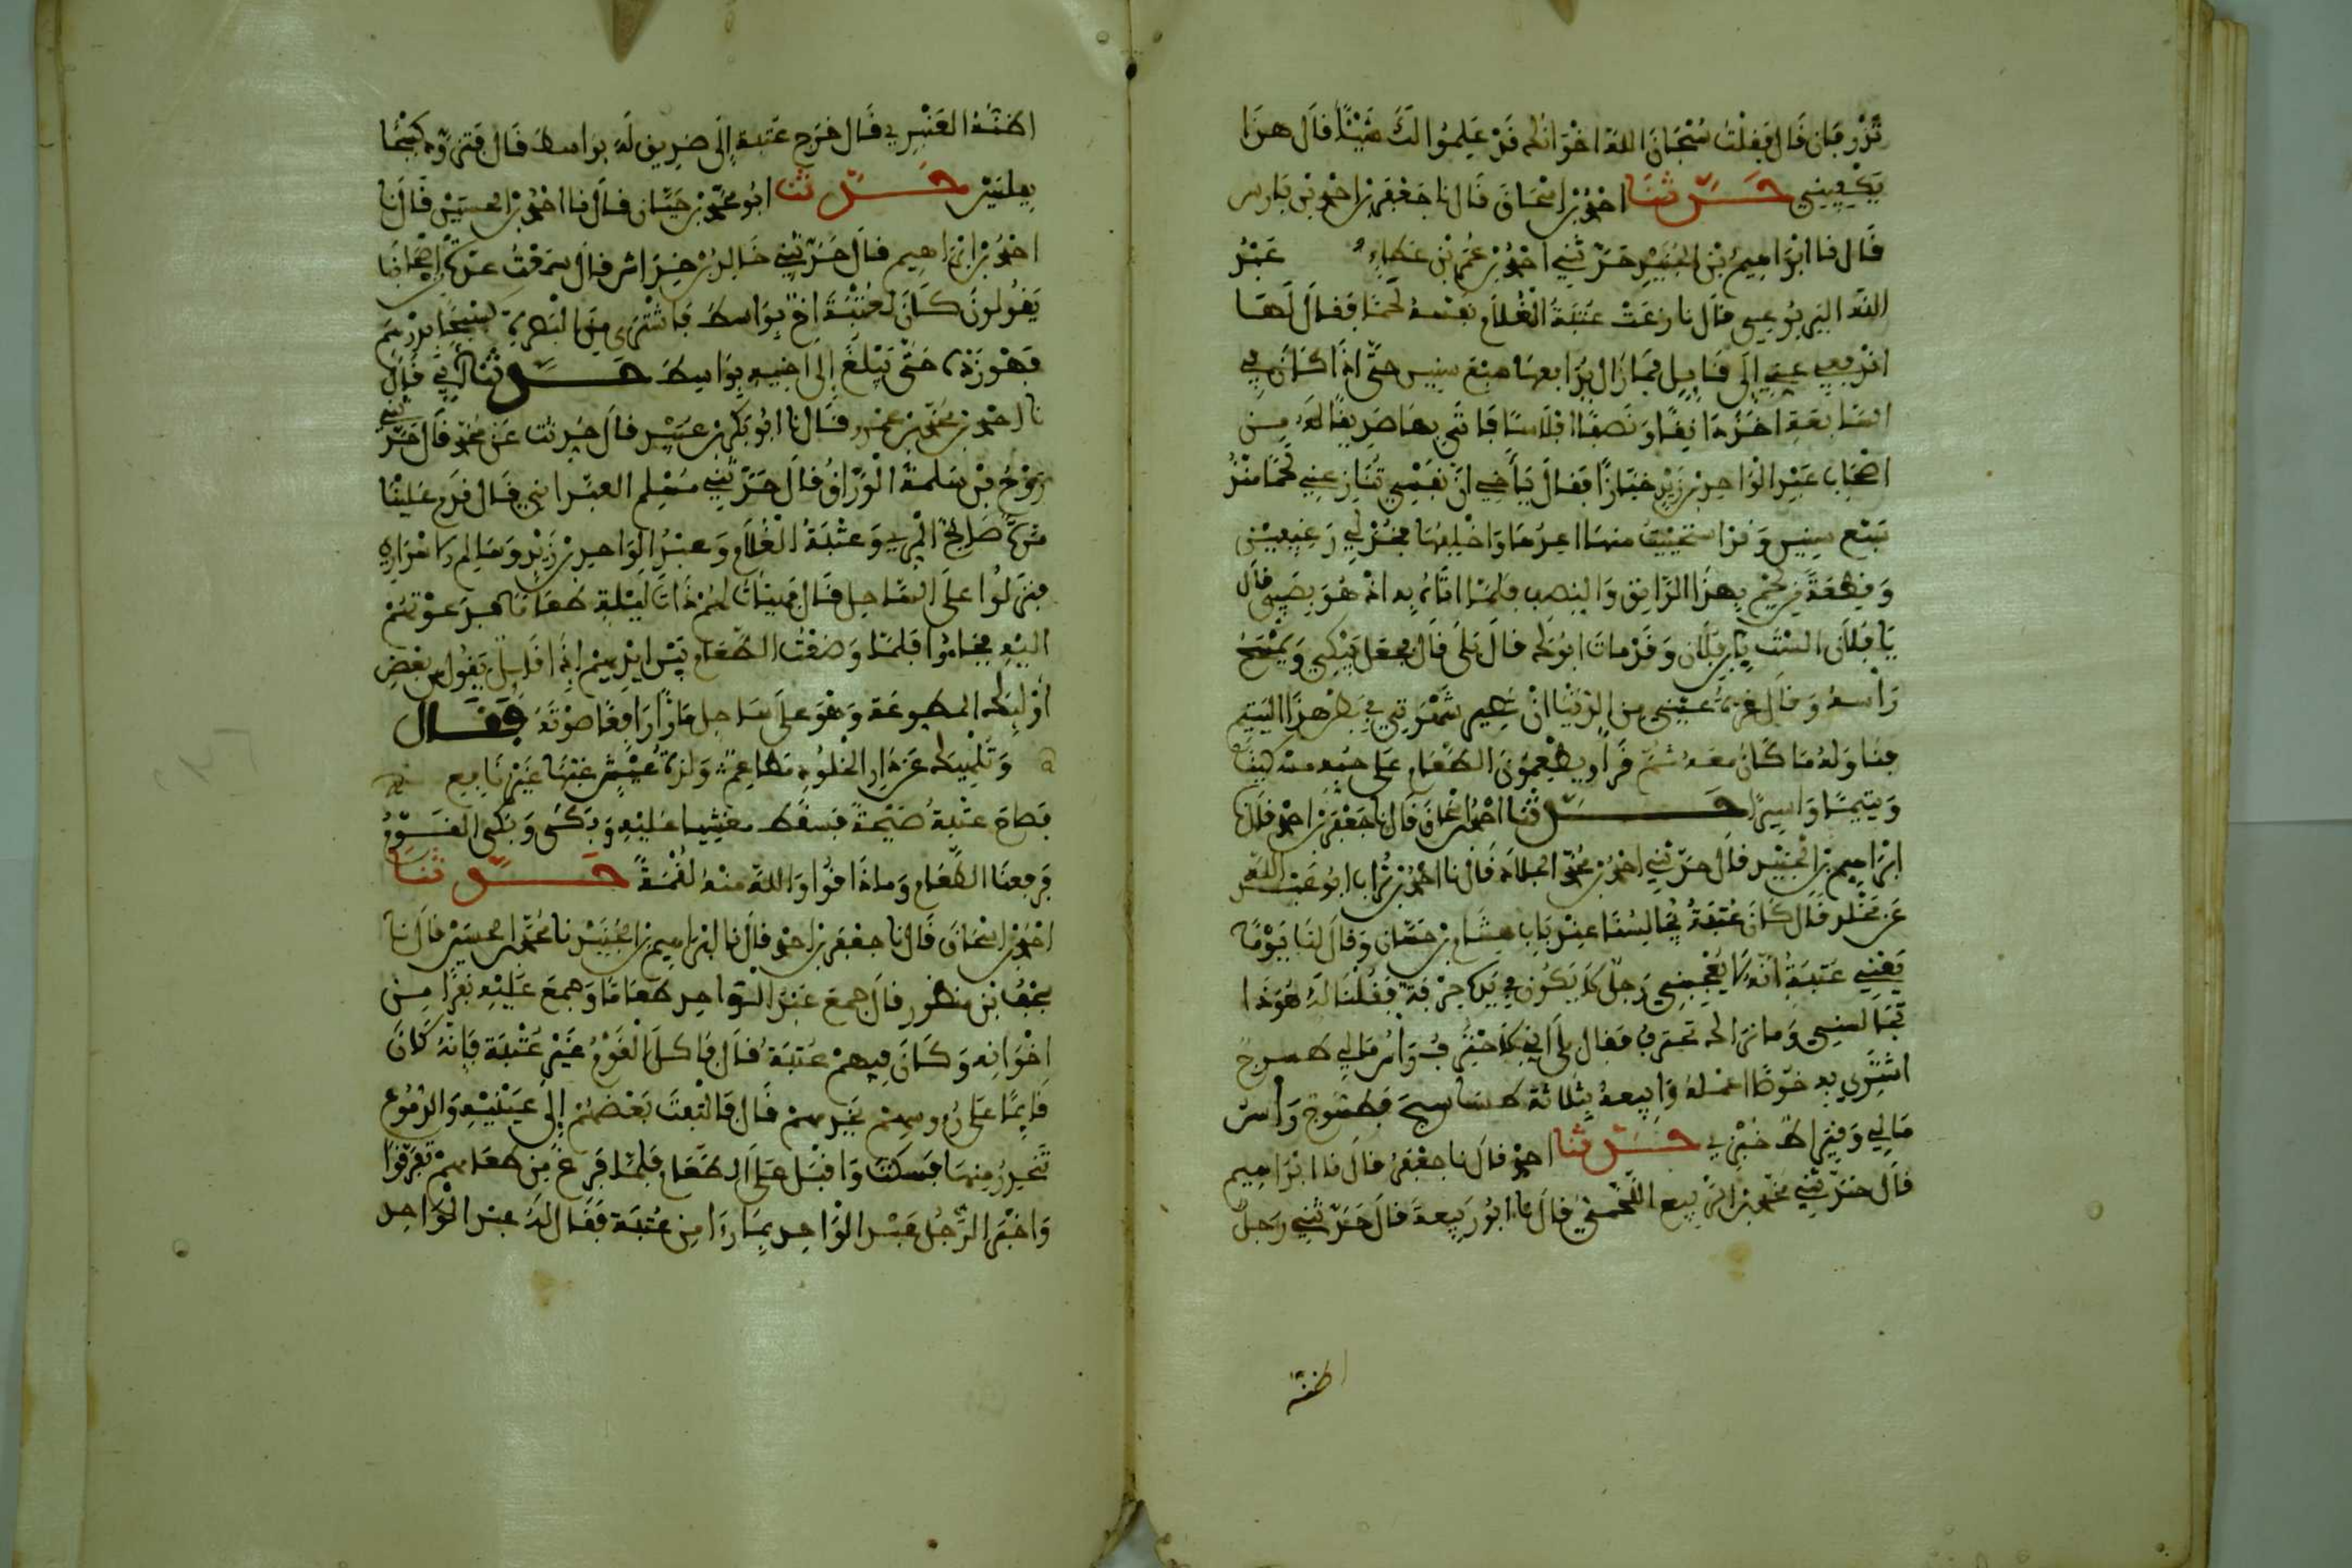 تزرقان قال فقلت سبحان الله اخوانك قد علموا لك شيئا قال هذا
يكفيني حدثنا احمد بن اسحاق قال نا جعفر بن احمد بن فارس
قال نا ابراهيم بن الجنيد حدثني احمد بن عمر بن عطاء عبد
الله اليربوعي قال نازعت عتبة الغلام نفسه لحما فقال لها
اندفعي عني إلى قابل فما زال يدافعها سبع سنين حتى اذا كان في
السابعة اخذ دانقا ونصفا افلاسا فاتى بها صديقا له من
اصحاب عبد الواحد بن زيد خبازا فقال يا أخي ان نفسي تنازعني لحما منذ
سبع سنين وقد استحييت منها اعدها واخلفها فخذ لي رغيفين
وقطعة من لحم بهذا الدانق والنصف فلما اتاه به اذ هو بصبي قال
يا فلان الست ابن فلان وقد مات ابوك قال بلى قال فجعل يبكي ويمسح
رأسه وقال قرة عيني من الدنيا ان تصير شهوتي في بطن هذا اليتيم
فناوله ما كان معه ثم قرأ ويطعمون الطعام على حبه مسكينا
ويتيما واسيرا حدثنا احمد بن اسحاق قال نا جعفر بن احمد قال نا
ابراهيم بن الجنيد قال حدثني احمد بن محمد قال نا احمد بن تراب ابو عبد الله
عن مخلد قال كان عتبة يجالسنا عند باب هشام بن حسان وقال لنا يوما
يعني عتبة انه لا يعجبني رجل لا يكون في يده حرفة فقلنا له هوذا
تجالسني وما نراك تحترف فقال بلى اني لاحترف وأس مالي طسوج
اشتري به خوصا اعمله وابيعه بثلاثة طساسيج فطسوج رأس
مالي وقيراط خبزي حدثنا احمد قال نا جعفر قال نا ابراهيم
قال حدثني محمد بن الربيع اللخمي قال نا ابو ربيعة قال حدثني رجل
اظنه
اظنه العنبري قال خرج عتبة إلى صديق له بواسط قال فتزود كيجا
بفلسين حدثنا ابو محمد بن حيان قال نا احمد بن الحسين قال نا
احمد بن ابراهيم قال حدثني خالد بن خداش قال سمعت عدة اصحابنا
يقولون كان لعتبة اخ بواسط فاشترى من البصرة كيلجا بدرهم
فهو زاده حتى يبلغ إلى اخيه بواسط حدثنا ابي قال
نا احمد بن محمد بن عمر قال نا ابو بكر بن عبيد قال حدثت عن محمد قال حدثني
روح بن سلمة الوراق قال حدثني مسلم العبداني قال قدم علينا
مرة صالح المري وعتبة الغلام وعبد الواحد بن زيد وسالم الاسواري
فنزلوا على الساحل قال فهيأت لهم ذات ليلة طعاما فدعوتهم
اليه فجاءوا فلما وضعت الطعام بين ايديهم اذا قائل يقول من بعض
أولئك المطوعة وهو على ساحل مارا رافعا صوته فقال
وتلهيك عن دار الخلود مطاعم ولذة عيش غبها غير نافع
فصاح عتبة صيحة فسقط مغشيا عليه وبكى وبكى القوم
فرفعنا الطعام وما ذاقوا والله منه لقمة حدثنا
احمد بن اسحاق قال نا جعفر بن احمد قال نا ابراهيم بن الجنيد نا محمد بن الحسين قال نا
بن منظور قال جمع عبد الواحد طعاما وجمع عليه نفرا من
اخوانه وكان فيهم عتبة قال فاكل القوم غير عتبة فإنه كان
قائما على رءوسهم يخدمهم قال فالتفت بعضهم إلى عينيه والدموع
تنحدر منها فسكت واقبل على الطعام فلما فرغ من طعامهم تفرقوا
واخبر الرجل عبد الواحد بما رءا من عتبة فقال له عبد الواحد